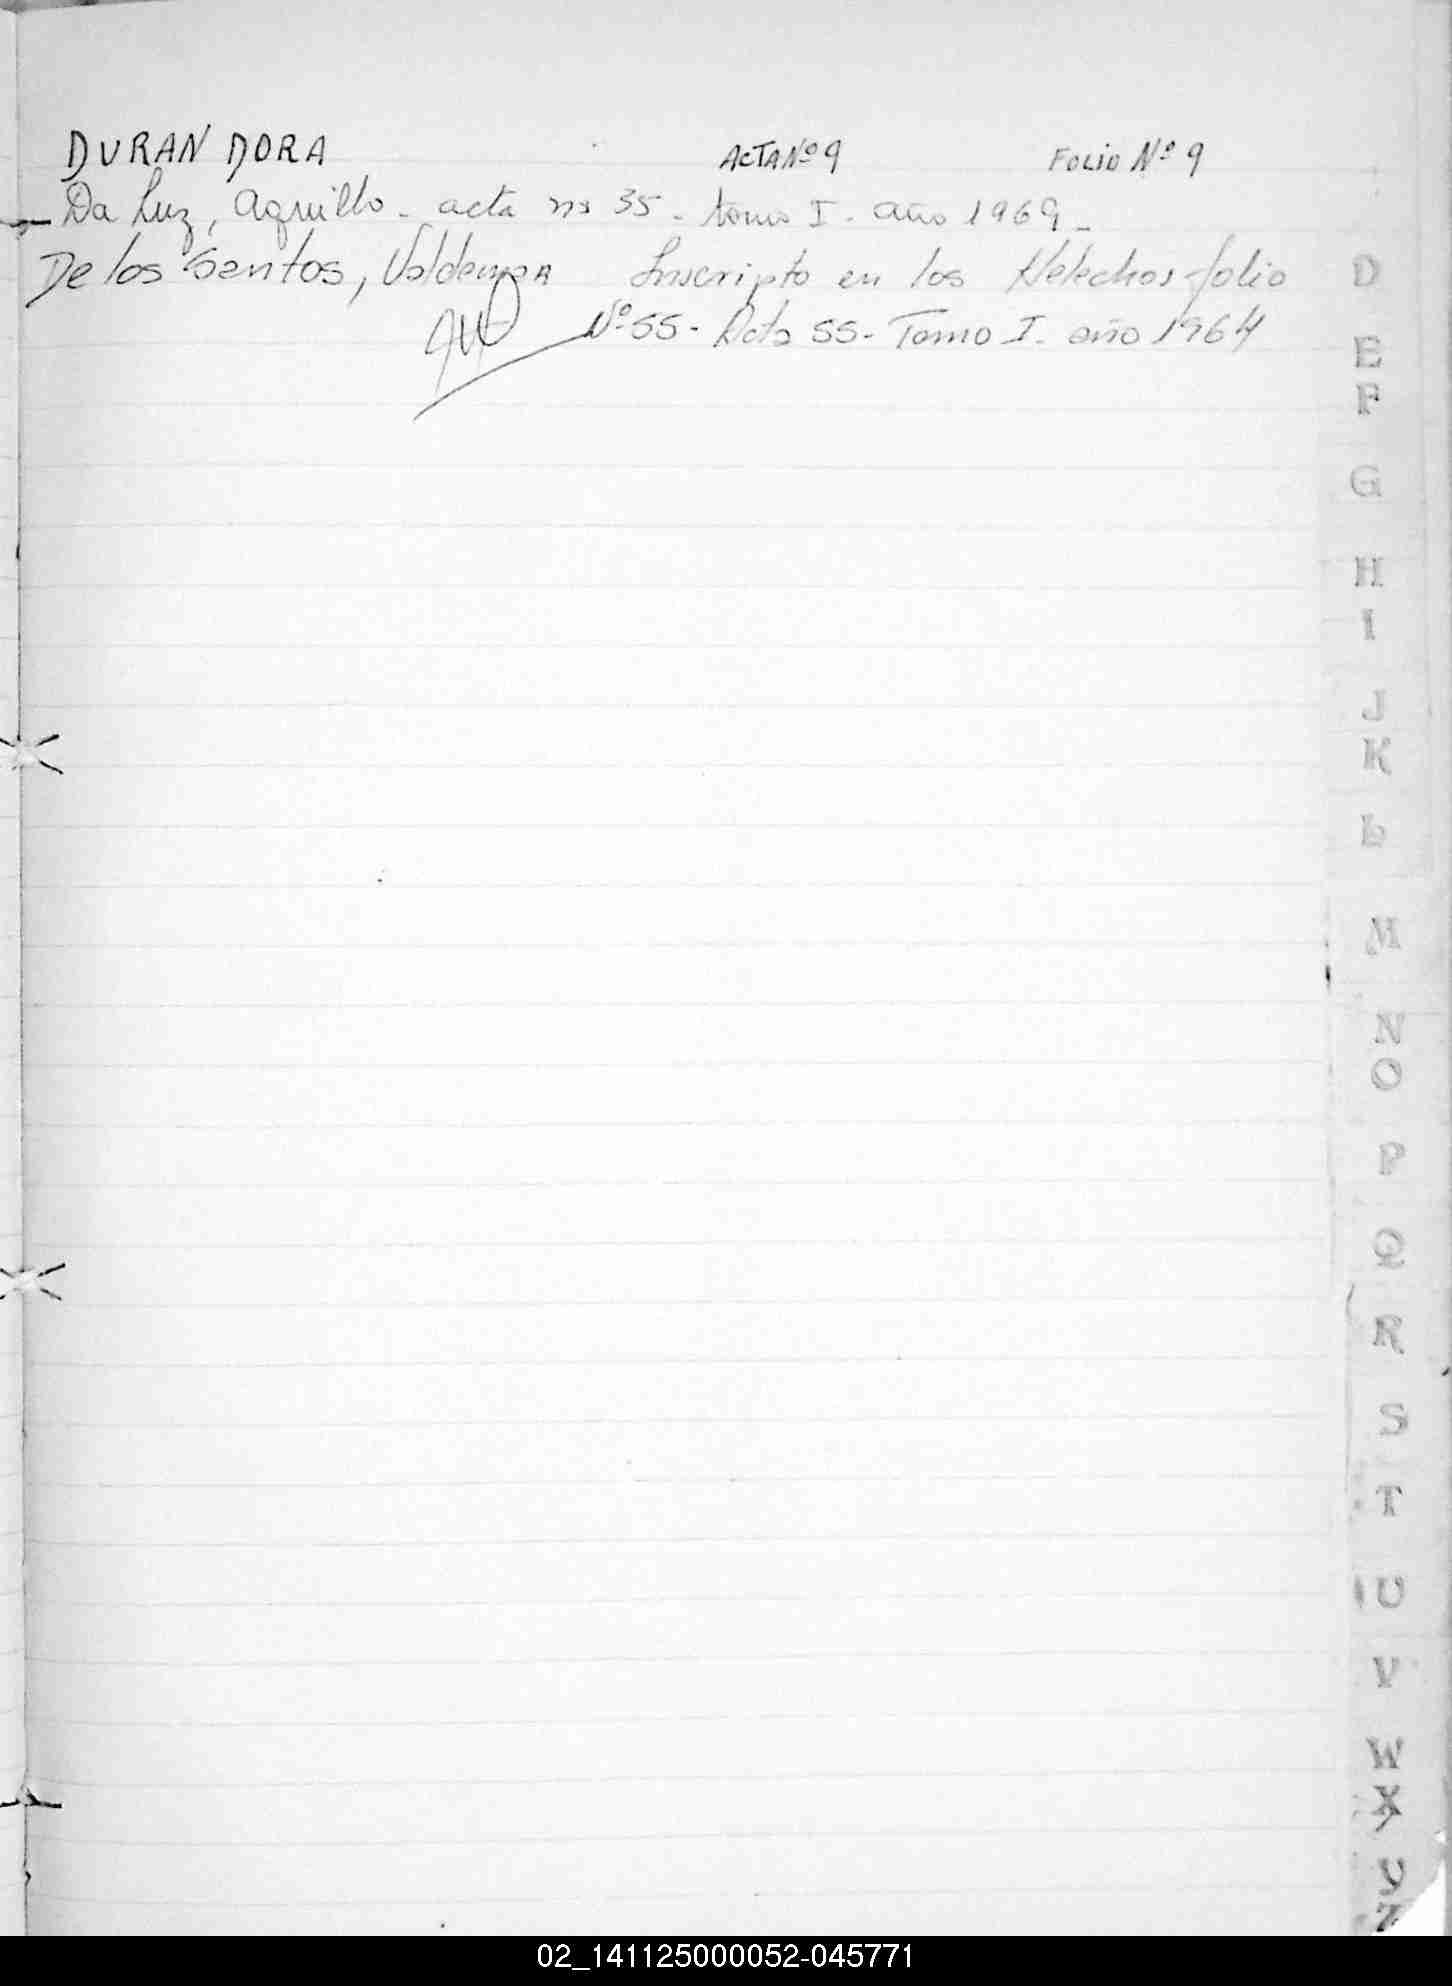 DURAN DORA ACTA Nº 9 FOLIO Nº 9
Da Luz, Aquillo - acta nº 35 - tomo I - año 1969 -
De los Santos, Valdemar Inscripto en los folio
Nº 55 - Acta 55 - Tomo I - año 1964
D
E
F
G
H
I
J
K
L
M
N
O
P
Q
R
S
T
U
V
W
X
Y
Z
02_141125000052-045771